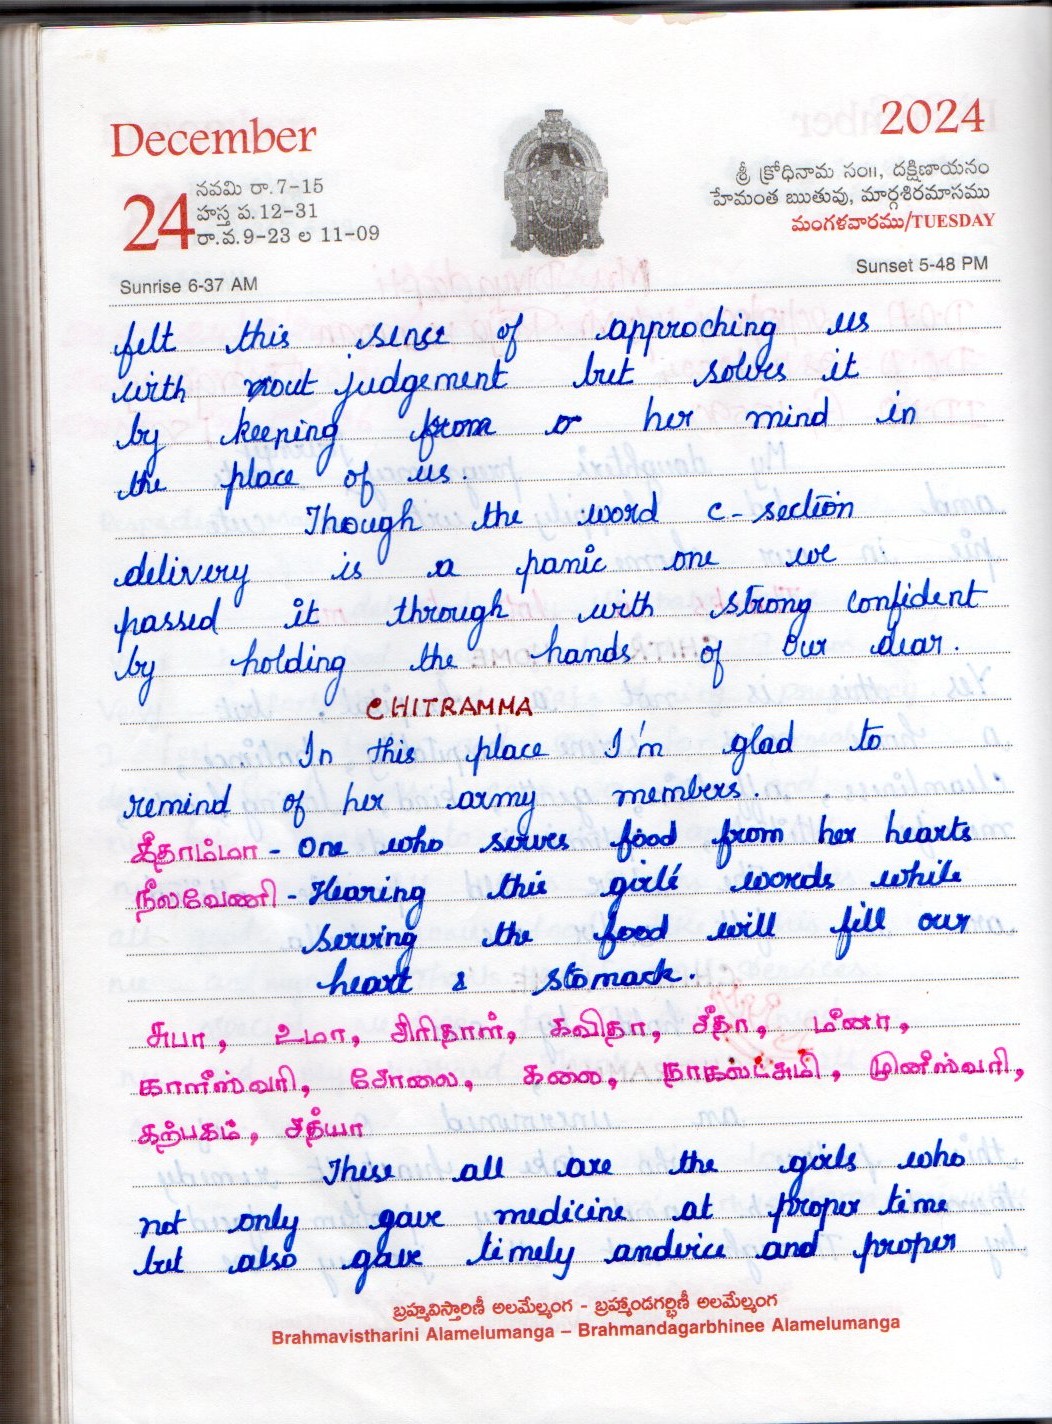 December
2024
24
నవమి రా.7-15
హస్త ప.12-31
రా.వ.9-23 ల 11-09
శ్రీ క్రోధినామ సం॥, దక్షిణాయనం
హేమంత ఋతువు, మార్గశిరమాసము
మంగళవారము/TUESDAY
Sunrise 6-37 AM
Sunset 5-48 PM
felt this sense of approching us
with out judgement but solves it
by keeping from her mind in
the place of us.
Though the word c-section
delivery is a panic one we
passed it through with strong confident
by holding the hands of our dear.
CHITRAMMA
In this place I'm glad to
remind of her army members.
கீதாம்மா - One who serves food from her hearts
நீலவேணி - Hearing this girls words while
serving the food will fill our
heart & stomack.
சுபா, உமா, சிரிதாள், கவிதா, சீதா, மீனா,
காளீஸ்வரி, சோலை, கலை, நாகலட்சுமி, முனீஸ்வரி,
கற்பகம், சத்யா
These all are the girls who
not only gave medicine at proper time
but also gave timely andvice and proper
బ్రహ్మవిస్తారిణీ అలమేల్మంగ - బ్రహ్మాండగర్భిణీ అలమేల్మంగ
Brahmavistharini Alamelumanga – Brahmandagarbhinee Alamelumanga